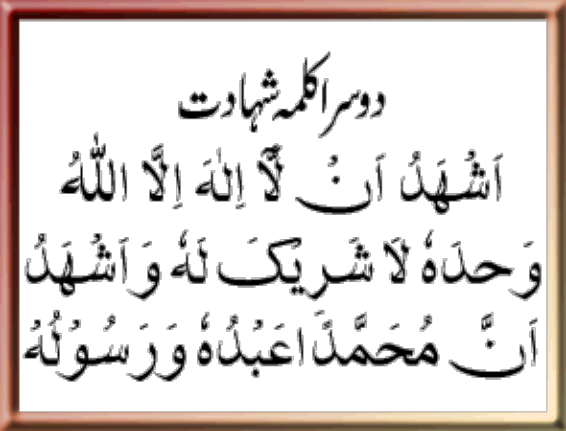 دوسرا کلمہ شہادت
اَشْهَدُ اَنْ لَّآ اِلٰهَ اِلَّا اللّٰهُ
وَحدَهٗ لَا شَرِيْكَ لَهٗ وَ اَشْهَدُ
اَنَّ مُحَمَّدًا عَبْدُهٗ وَ رَسُوْلُهٗ